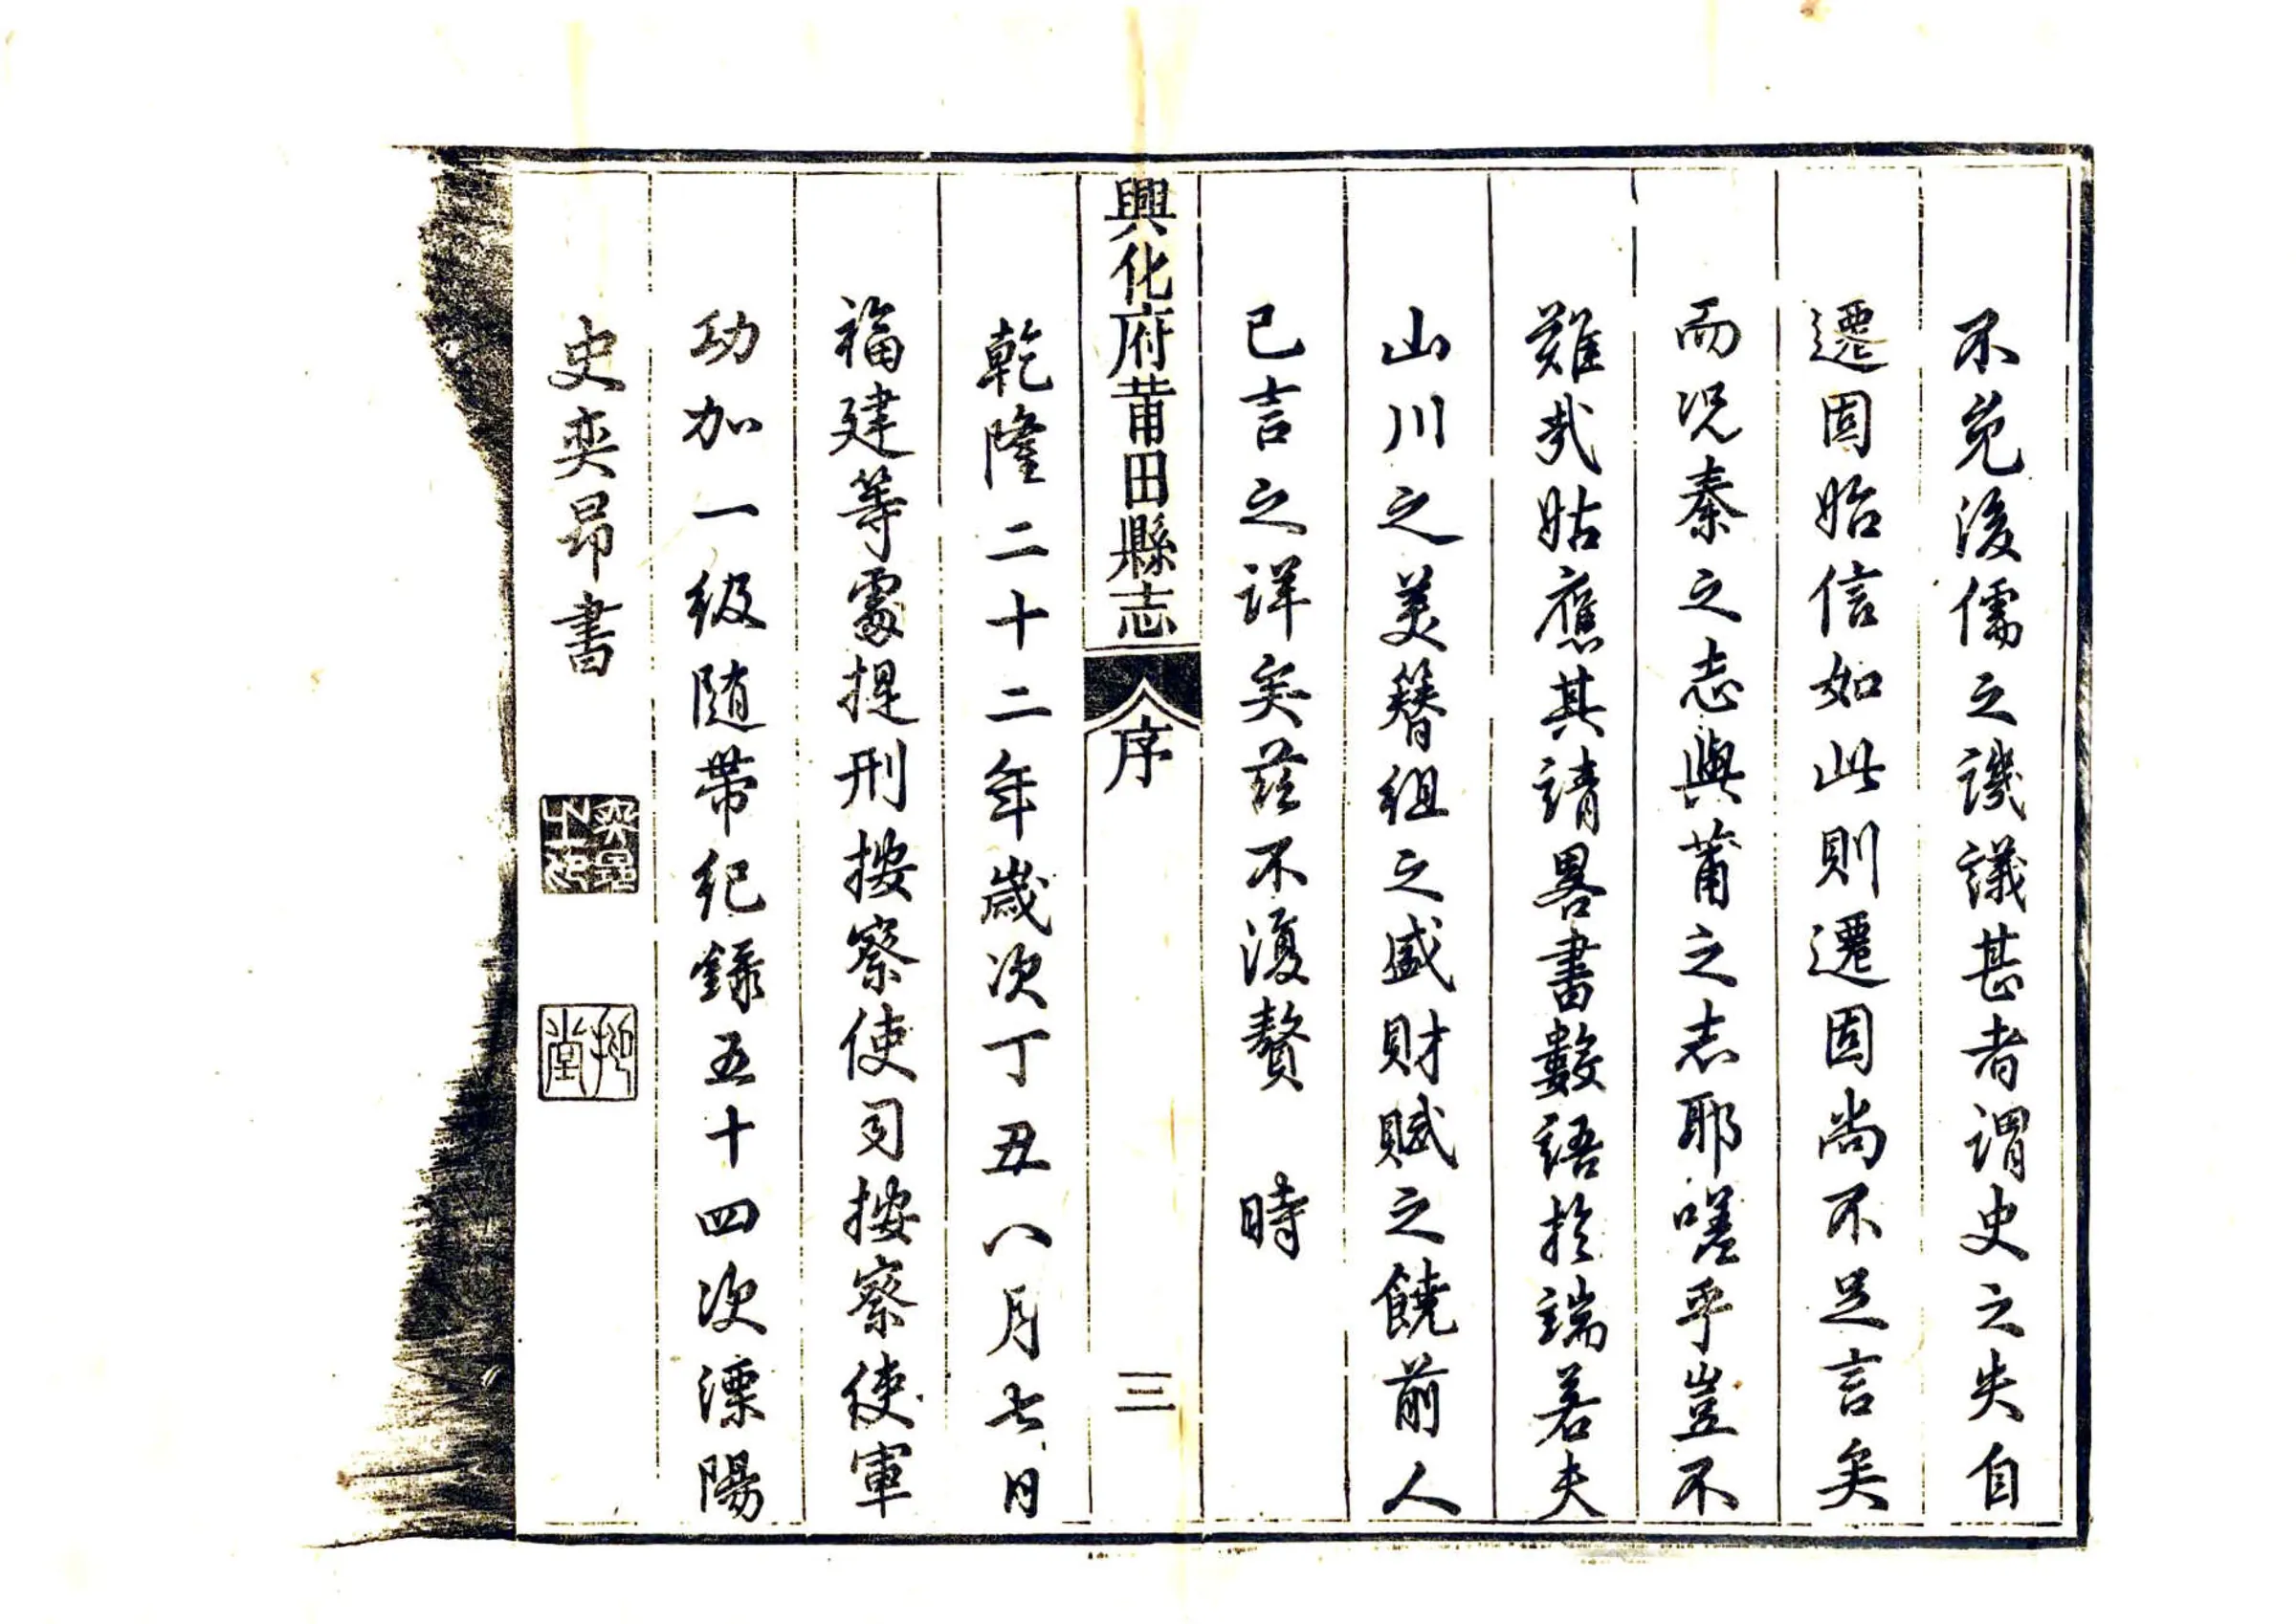 不免後儒之譏議甚者謂史之失自
遷固始信如此則遷固尚不足言矣
而况秦之志與莆之志耶嗟乎豈不
難哉姑應其請畧書數語於端若夫
山川之美簪組之盛財賦之饒前人
已言之詳矣茲不復贅　時
興化府莆田縣志
序
三
乾隆二十二年歲次丁丑八月七日
福建等處提刑按察使司按察使軍
功加一級随帶紀錄五十四次溧陽
史奕昂書
奕昂之印